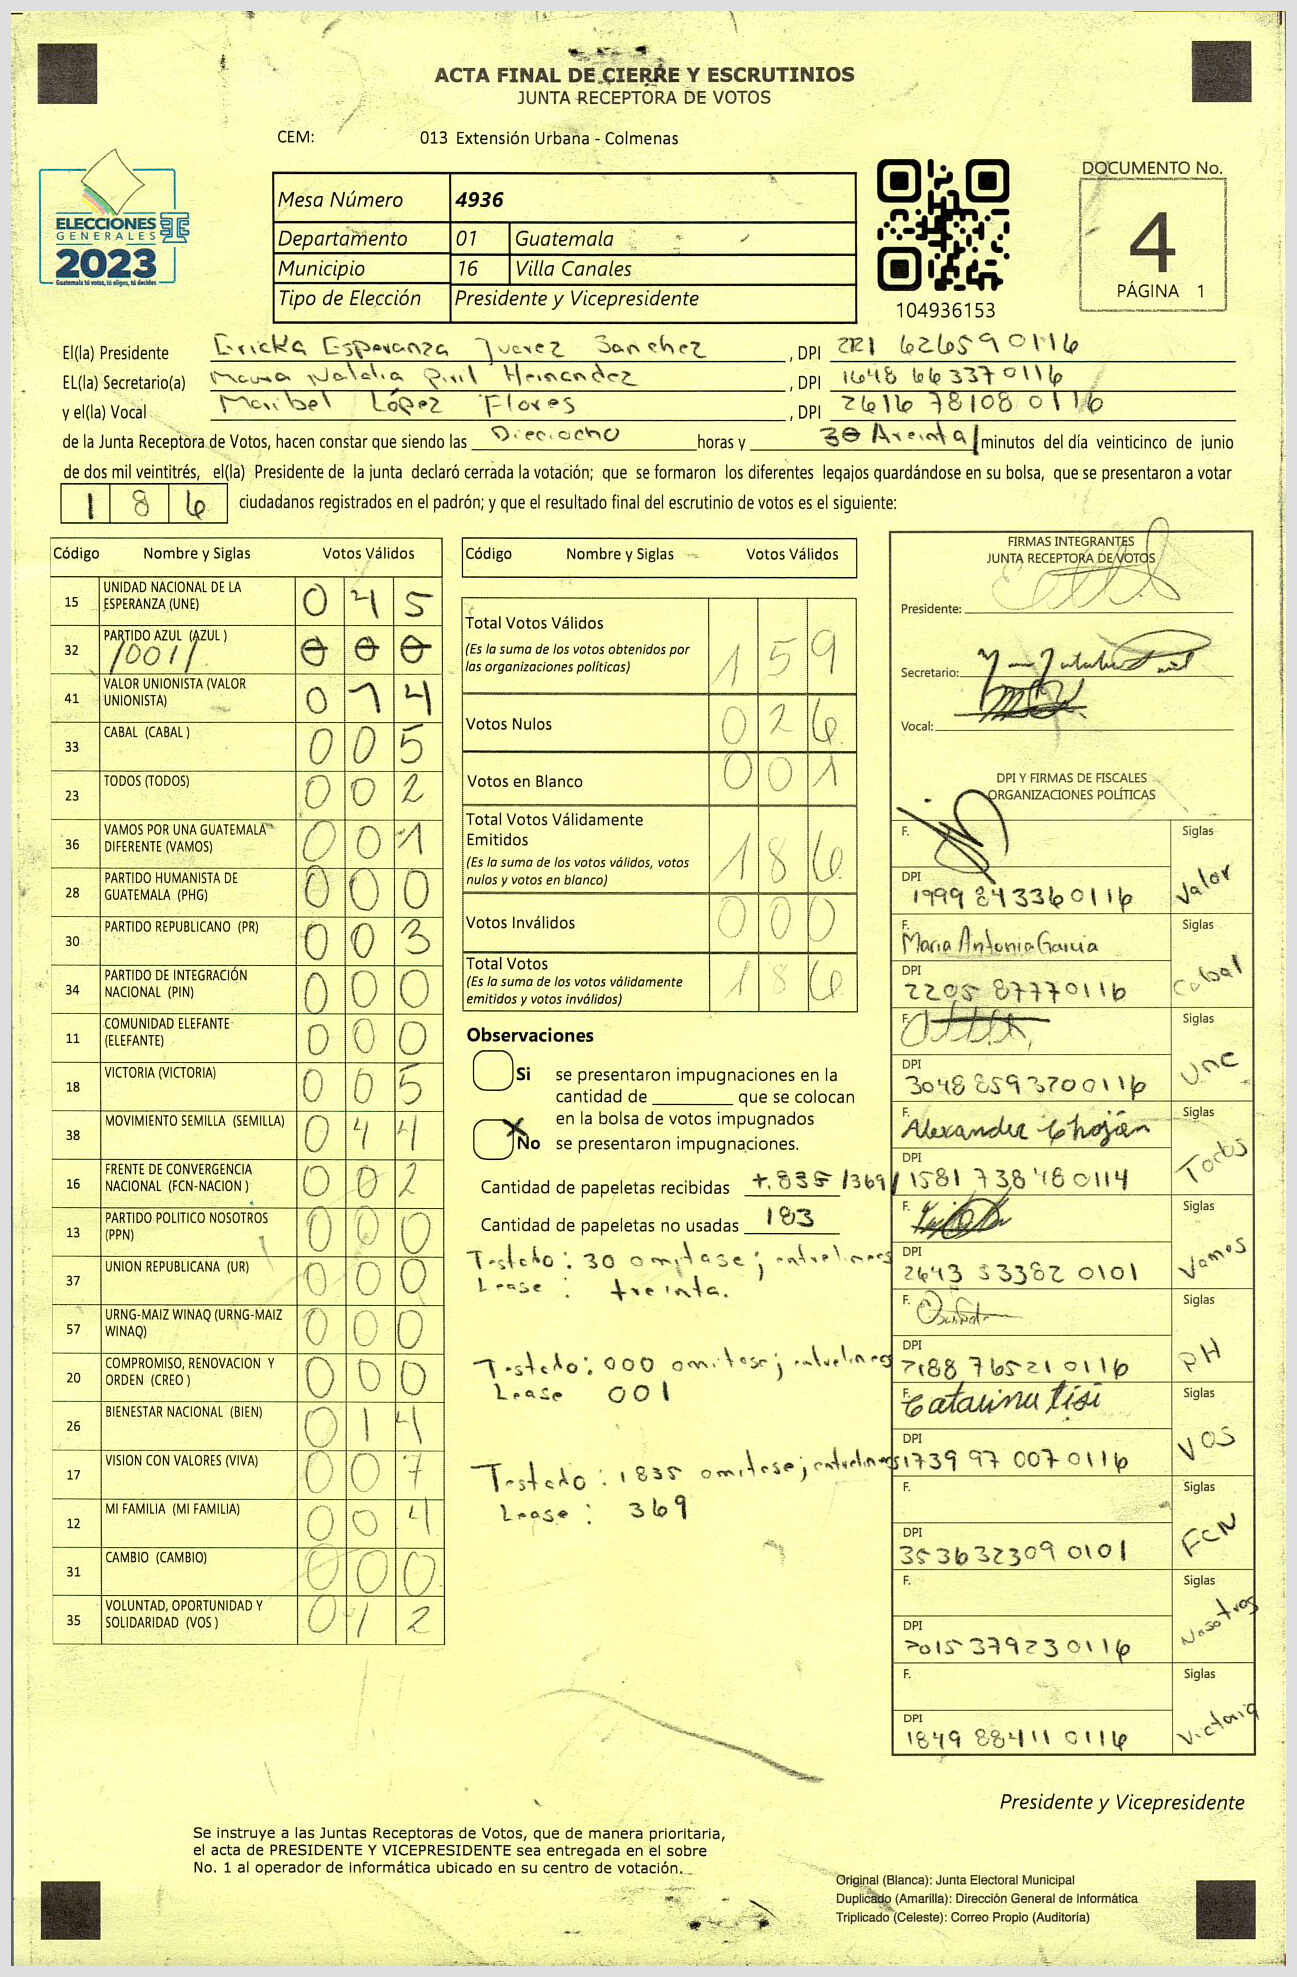 ACTA FINAL DE CIERRE Y ESCRUTINIOS
JUNTA RECEPTORA DE VOTOS
CEM: 013 Extensión Urbana - Colmenas
ELECCIONES
GENERALES
2023
Guatemala tú votas, tú eliges, tú decides
Mesa Número 4936
Departamento 01 Guatemala
Municipio 16 Villa Canales
Tipo de Elección Presidente y Vicepresidente
104936153
DOCUMENTO No.
4
PÁGINA 1
El(la) Presidente Ericka Esperanza Juarez Sanchez, DPI 626590116
EL(la) Secretario(a) Natalia Hernandez, DPI 1648 663370116
y el(la) Vocal Maribel López Flores, DPI 2616 78108 0116
de la Junta Receptora de Votos, hacen constar que siendo las Dieciocho horas y 30 /treinta/ minutos del día veinticinco de junio
de dos mil veintitrés, el(la) Presidente de la junta declaró cerrada la votación; que se formaron los diferentes legajos guardándose en su bolsa, que se presentaron a votar
186 ciudadanos registrados en el padrón; y que el resultado final del escrutinio de votos es el siguiente:
Código Nombre y Siglas Votos Válidos
15 UNIDAD NACIONAL DE LA ESPERANZA (UNE) 0 4 5
32 PARTIDO AZUL (AZUL) /001/ 0 0 0
41 VALOR UNIONISTA (VALOR UNIONISTA) 0 1 4
33 CABAL (CABAL) 0 0 5
23 TODOS (TODOS) 0 0 2
36 VAMOS POR UNA GUATEMALA DIFERENTE (VAMOS) 0 0 1
28 PARTIDO HUMANISTA DE GUATEMALA (PHG) 0 0 0
30 PARTIDO REPUBLICANO (PR) 0 0 3
34 PARTIDO DE INTEGRACIÓN NACIONAL (PIN) 0 0 0
11 COMUNIDAD ELEFANTE (ELEFANTE) 0 0 0
18 VICTORIA (VICTORIA) 0 0 5
38 MOVIMIENTO SEMILLA (SEMILLA) 0 4 4
16 FRENTE DE CONVERGENCIA NACIONAL (FCN-NACION) 0 0 2
13 PARTIDO POLITICO NOSOTROS (PPN) 0 0 0
37 UNION REPUBLICANA (UR) 0 0 0
57 URNG-MAIZ WINAQ (URNG-MAIZ WINAQ) 0 0 0
20 COMPROMISO, RENOVACION Y ORDEN (CREO) 0 0 0
26 BIENESTAR NACIONAL (BIEN) 0 1 4
17 VISION CON VALORES (VIVA) 0 0 7
12 MI FAMILIA (MI FAMILIA) 0 0 4
31 CAMBIO (CAMBIO) 0 0 0
35 VOLUNTAD, OPORTUNIDAD Y SOLIDARIDAD (VOS) 0 1 2
Código Nombre y Siglas Votos Válidos
Total Votos Válidos 1 5 9
(Es la suma de los votos obtenidos por
las organizaciones políticas)
Votos Nulos 0 2 6
Votos en Blanco 0 0 1
Total Votos Válidamente
Emitidos 1 8 6
(Es la suma de los votos válidos, votos
nulos y votos en blanco)
Votos Inválidos 0 0 0
Total Votos 1 8 6
(Es la suma de los votos válidamente
emitidos y votos inválidos)
Observaciones
Si se presentaron impugnaciones en la
cantidad de que se colocan
en la bolsa de votos impugnados
X No se presentaron impugnaciones.
Cantidad de papeletas recibidas 1,835 /369/
Cantidad de papeletas no usadas 183
Testado: 30 omitase; entrelineas
Lease: treinta.
Testado: 000 omitase; entrelineas
Lease 001
Testado: 1835 omitase; entrelineas
Lease: 369
FIRMAS INTEGRANTES
JUNTA RECEPTORA DE VOTOS
Presidente:
Secretario:
Vocal:
DPI Y FIRMAS DE FISCALES
ORGANIZACIONES POLÍTICAS
F. Siglas Valor
DPI 1999 84336 0116
F. Maria Antonia Garcia Siglas Cabal
DPI 2205 87770116
F. Siglas Une
DPI 3048 8593700116
F. Alexander Chojón Siglas Todos
DPI 1581 738480114
F. Siglas Vamos
DPI 2643 33382 0101
F. Siglas PH
DPI 2188 76521 0116
F. Catarina Siglas VOS
DPI 1739 97 007 0116
F. Siglas FCN
DPI 353632309 0101
F. Siglas Nosotros
DPI 2015 379230116
F. Siglas Victoria
DPI 1849 88411 0116
Presidente y Vicepresidente
Se instruye a las Juntas Receptoras de Votos, que de manera prioritaria,
el acta de PRESIDENTE Y VICEPRESIDENTE sea entregada en el sobre
No. 1 al operador de informática ubicado en su centro de votación.
Original (Blanca): Junta Electoral Municipal
Duplicado (Amarilla): Dirección General de Informática
Triplicado (Celeste): Correo Propio (Auditoría)